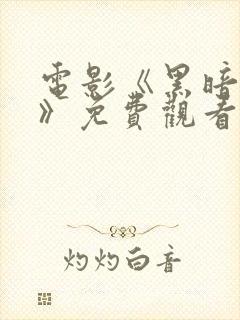 電影《黑暗
》免費觀看
灼灼白音